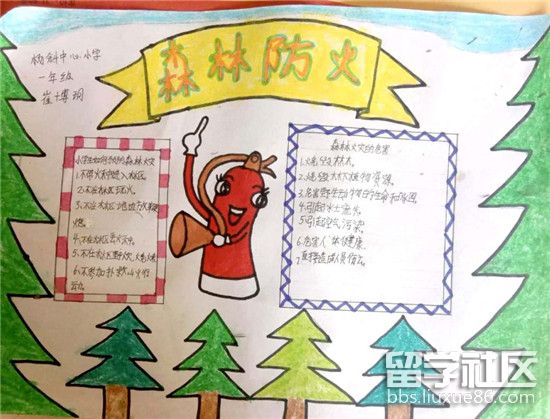 森林防火
杨斜中心小学
一年级
小学生如何预防森林火灾
1.不带火种进入林区。
2.不在林区玩火。
3.不在林区
烧。
4.不在林区
5.不在林区野炊,
6.不参加扑救山火行
动。
森林火灾的危害
1.烧毁林木。
2.烧毁林下植物资源。
3.危害野生动物
4.引起水土流失。
5.引起空气污染。
6.危害人体健康。
7.直接造成人员伤亡。
留学社区
bbs.liuxue86.com